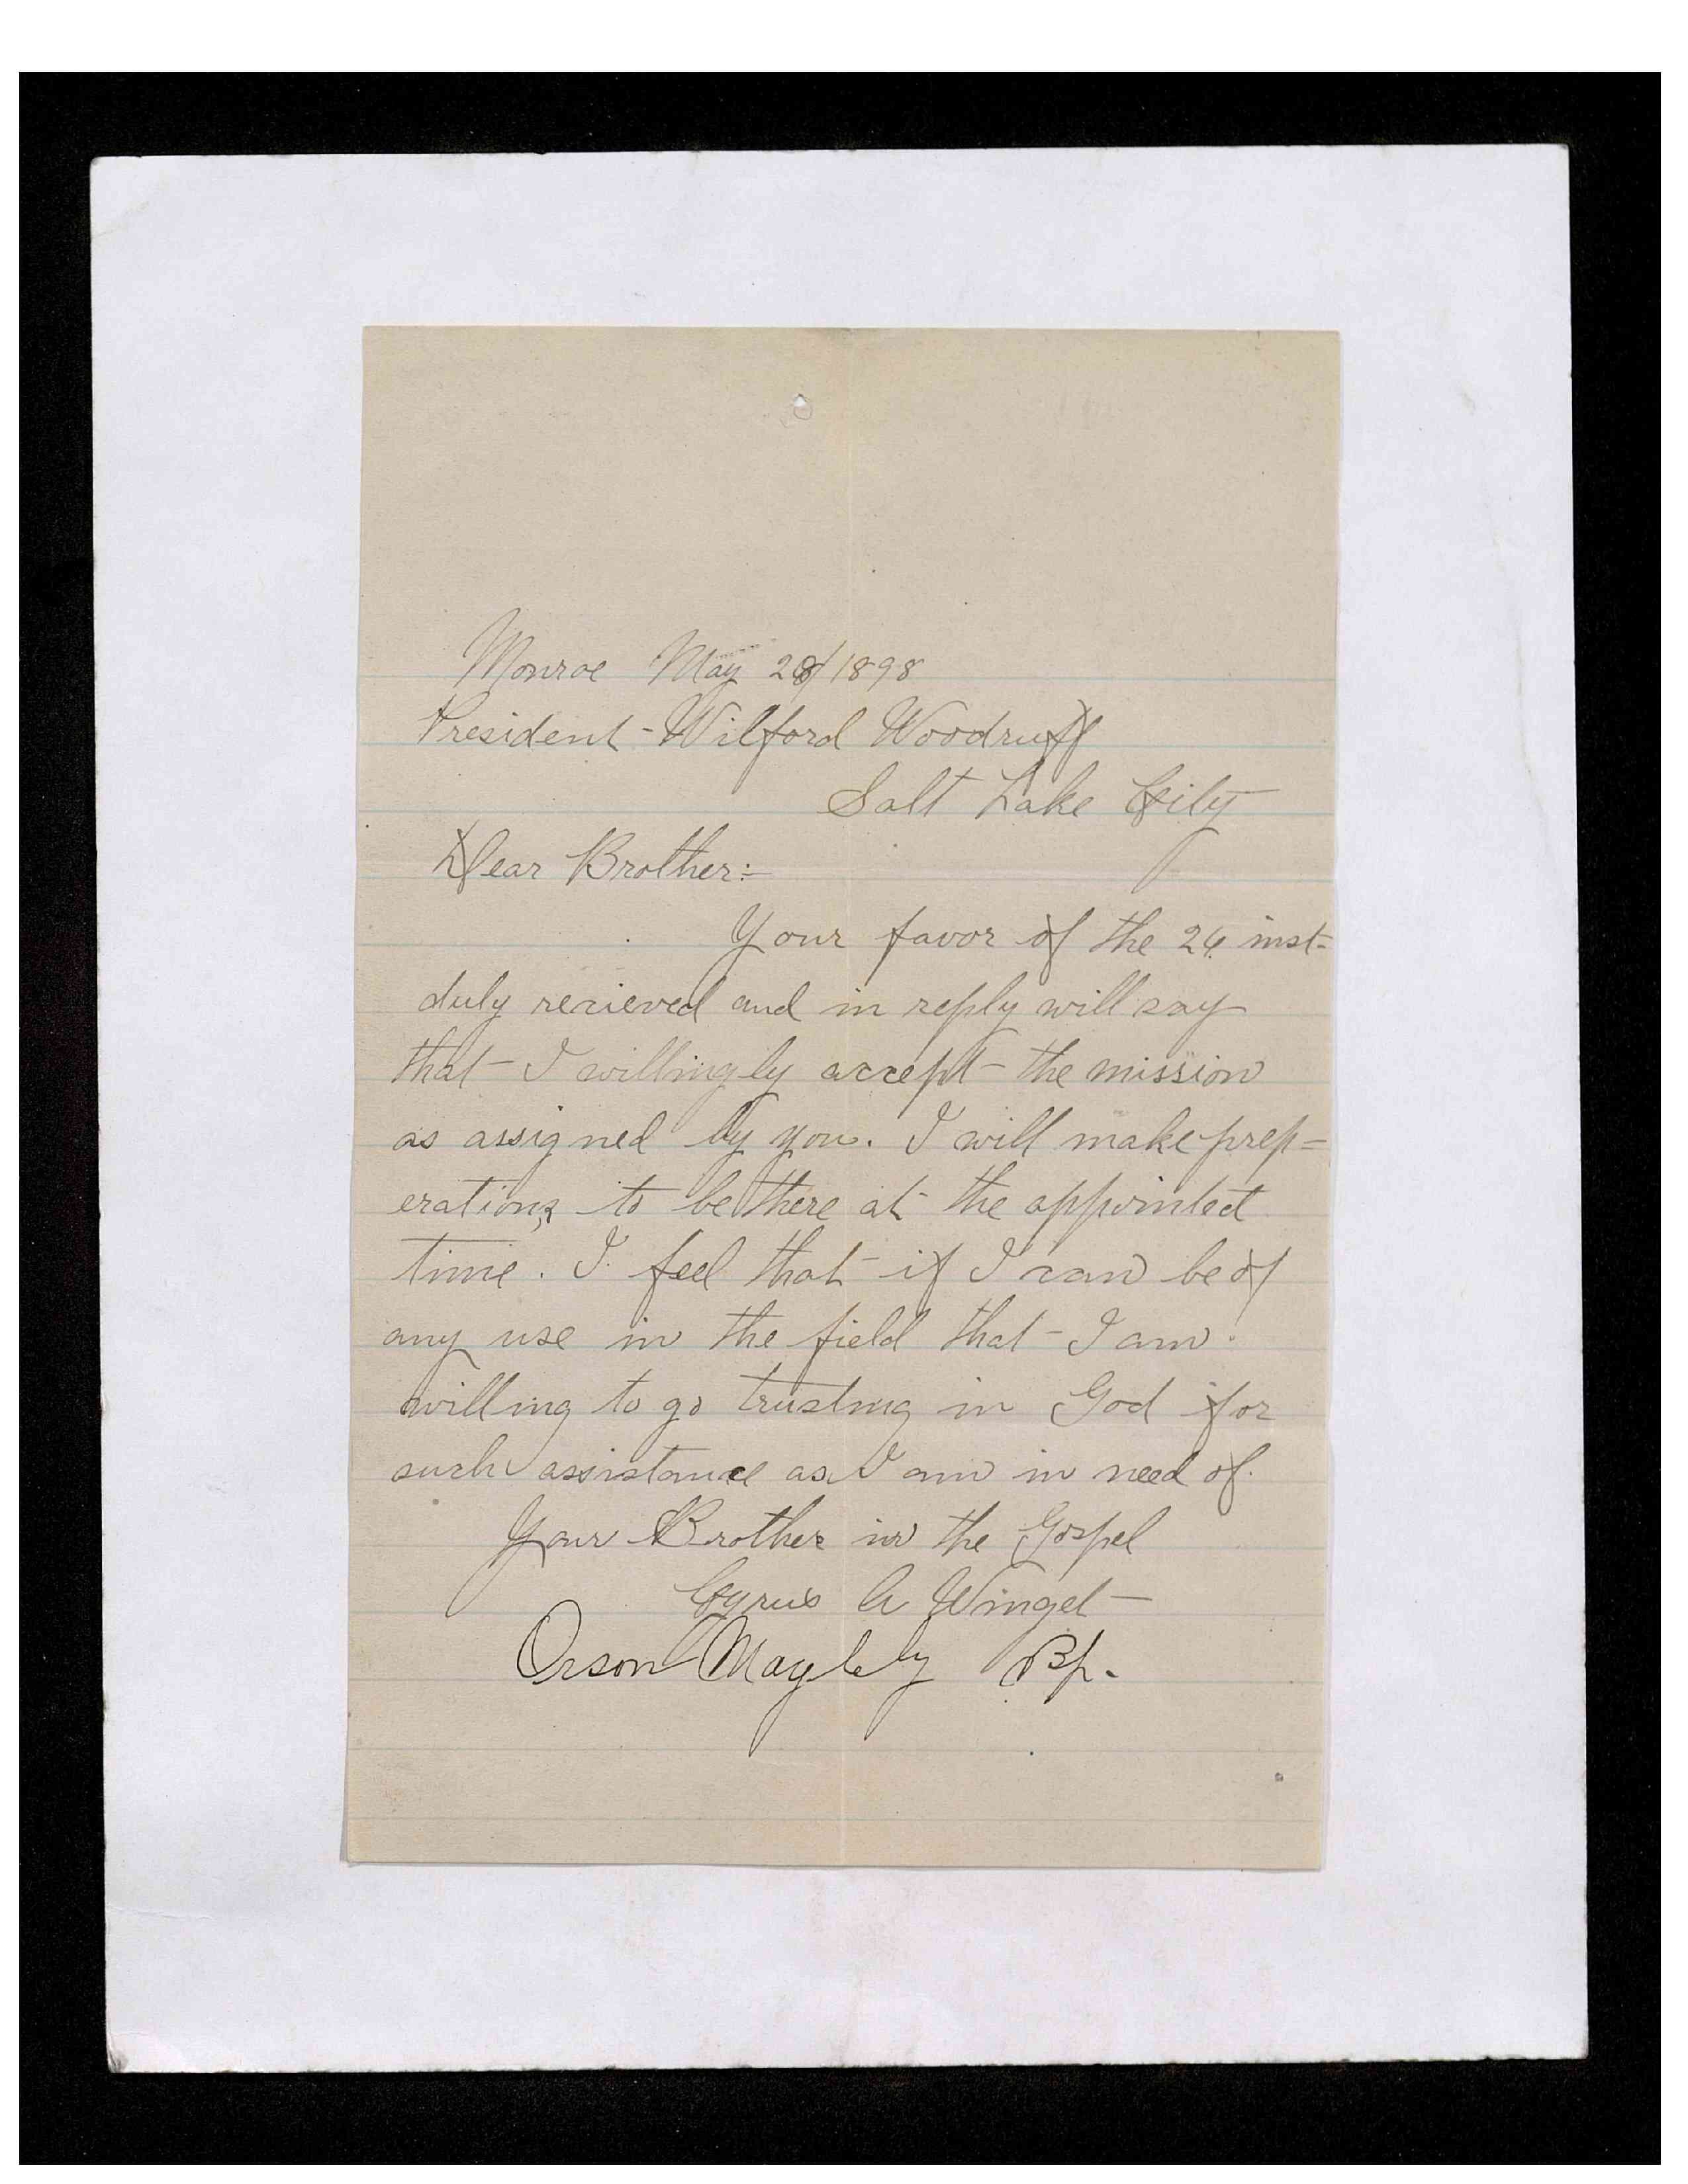 Monroe May 28/1898
President Wilford Woodruff
Salt Lake City
Dear Brother:-
Your favor of the 26 inst-
duly recieved and in reply will say
that I willingly accept the mission
as assigned by you. I will make prep=
erations to be there at the appointed
time. I feel that if I can be of
any use in the field that I am
willing to go trusting in God for
such assistance as I am in need of.
Your Brother in the Gospel
Cyrus A Winget
Orson Magleby Bp.